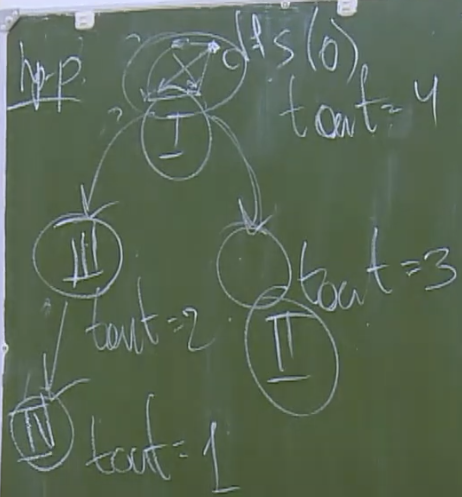 dfs(0)
Пр-р.
tout=4
I
III
tout=3
tout=2
II
IV
tout=1